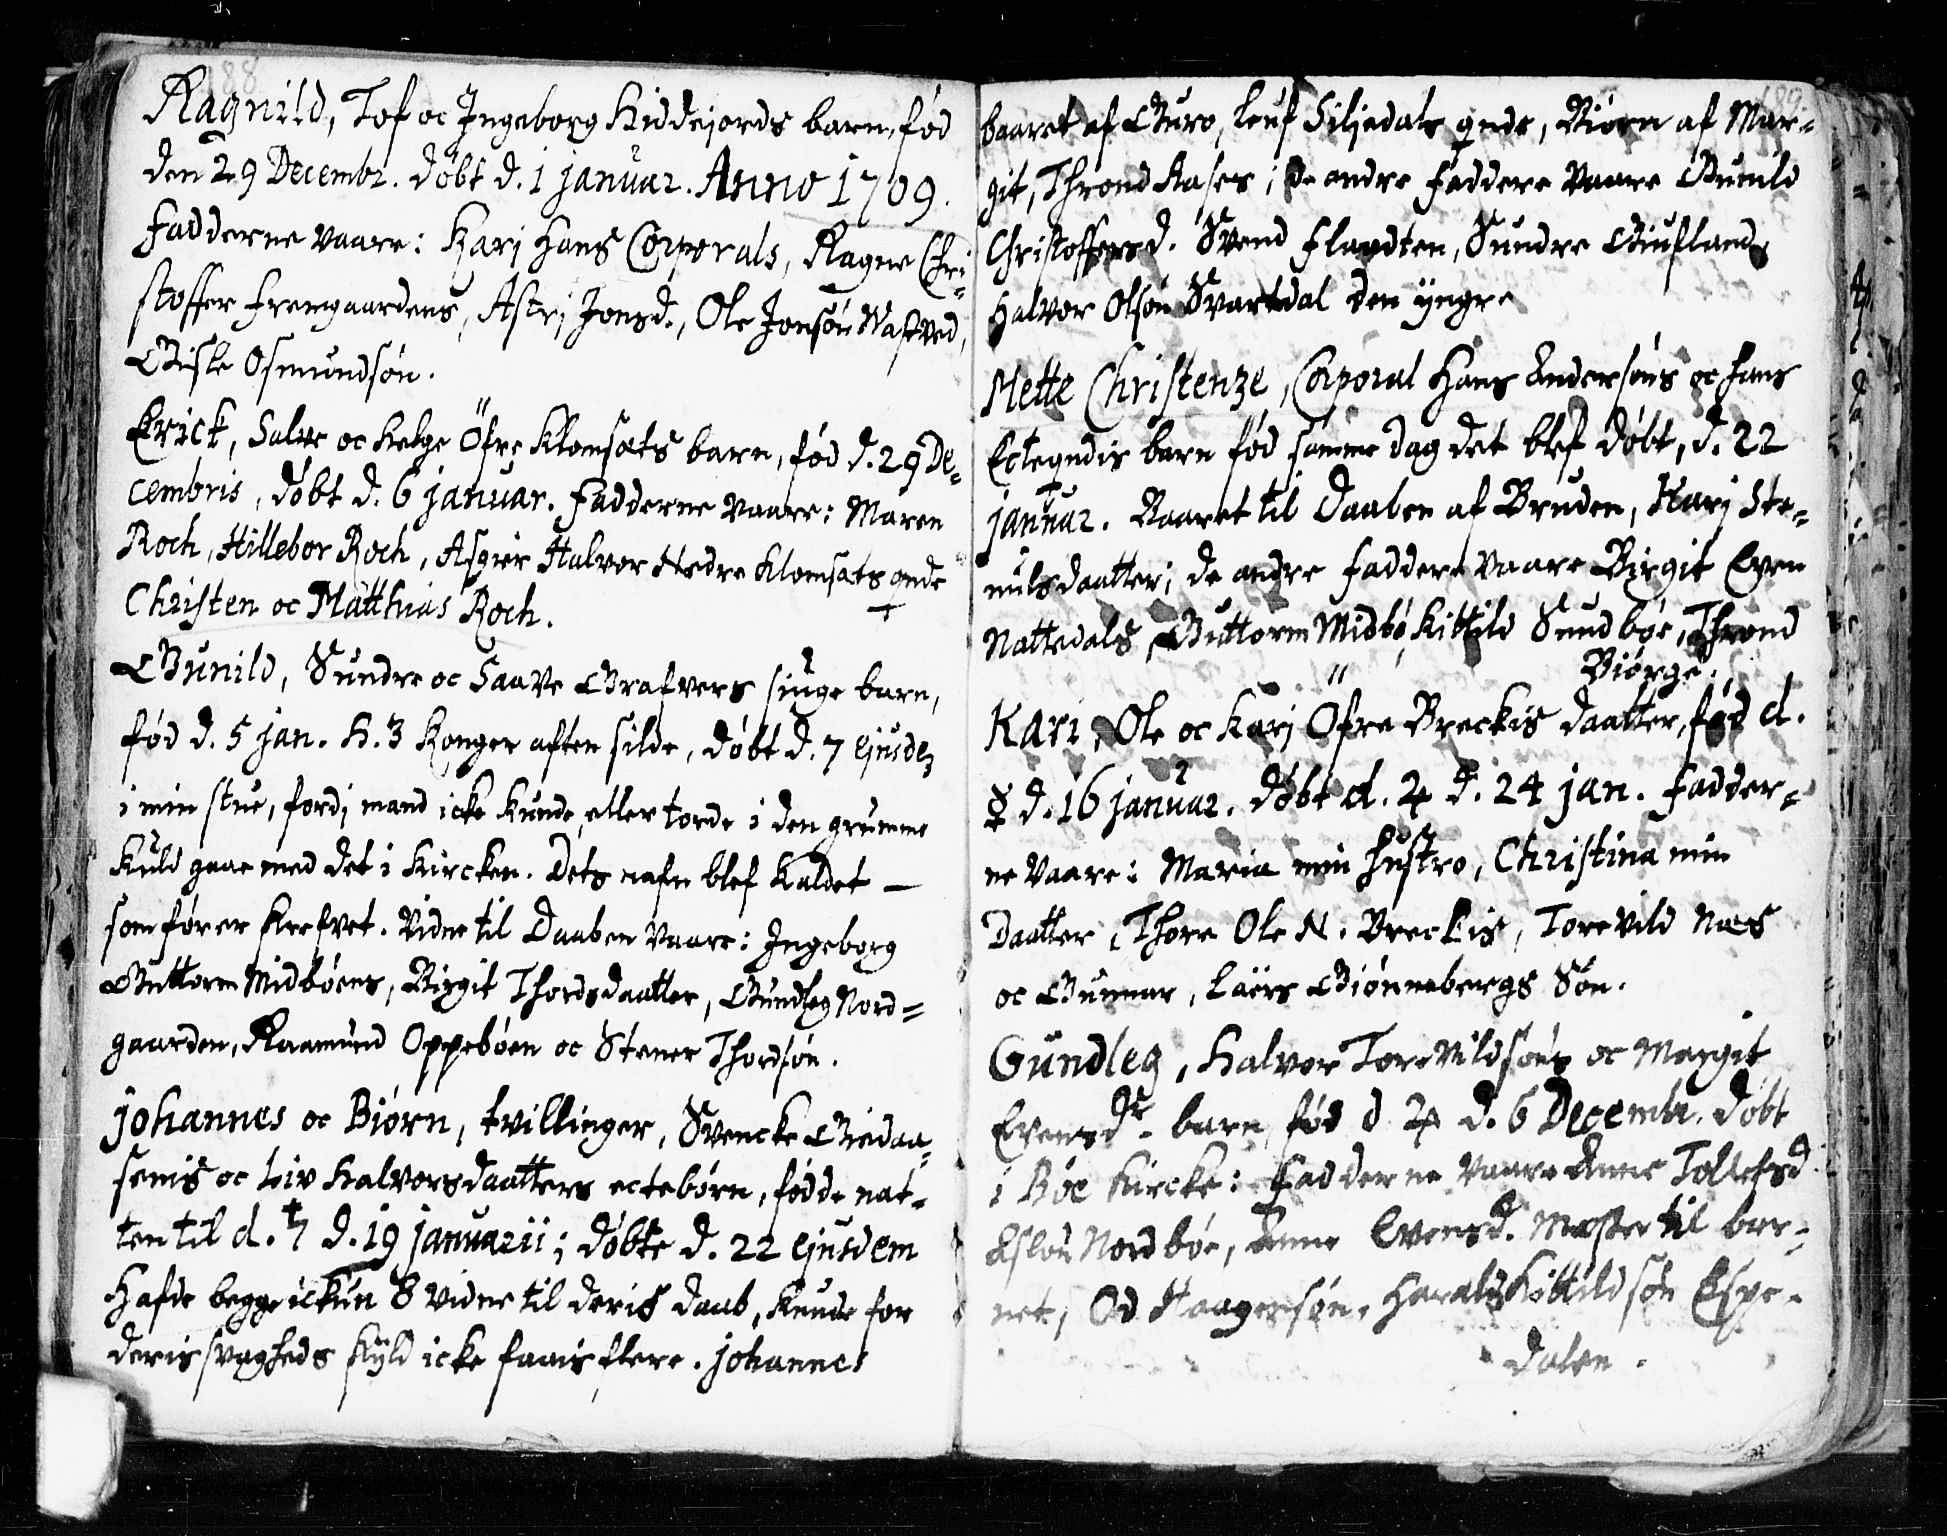 188
Ragnild, Tof oc Ingeborg Kiddejords barn, fød
den 29 Decembr. døbt d. 1 januar. Anno 1709.
Fadderne vaare: Karj Hans Corporals, Ragne Chri-
stoffer Fremgaardens, Astrj Jonsd., Ole Jonsøn Wasved,
Gisle Osmundsøn.
Erick, Salve oc Helge Öfre Klomsæts barn, fød d. 29 De-
cembris, døbt d. 6 januar. Fadderne vaare: Maren
Roch, Hillebor Roch, Asgier Halvor Nedre Klomsæts qnde
Christen oc Matthias Roch.
Gunild, Sundre oc Saave Grafvers siuge barn,
fød d. 5 jan. H. 3 Konger aften silde, døbt d. 7 ejusde
i min stue, fordj mand icke kunde, eller torde i den grumme
Kuld gaae med det i Kircken. Dets nafn blef kaldet —
som før er skrefvet. Vidne til Daaben vaare: Ingeborg
Guttorm Midbøens, Birgit Thordsdaatter, Gundleg Nord-
gaarden, Raamund Oppebøen oc Stener Thordsøn.
Johannes oc Biørn, tvillinger, Svencke Giedaa-
semis oc Liv Halvorsdaatters ectebørn, fødde nat-
ten til d. ♄ d. 19 januarii; døbte d. 22 ejusdem
Hafde begge ickun 8 vidne til deris daab, kunde for
deris svagheds skyld icke faais flere. Johannes
189
baaret af Guro, Leuf Siljedals qnde, Biørn af Mar-
git, Thrond Aases; de andre Faddere vaare Gunild
Christoffersd. Svend Flaadten, Sundre Giuflands
Halvor Olsøn Svartdal den yngre
Mette Christenze, Corporal Hans Andersøns oc hans
Ecteqndis barn fød samme dag det blef døbt, d. 22
januar. Baaret til Daaben af Bruden, Karj Ste-
nulsdaatter; de andre Faddere vaare Birgit Even
Nattedals, Guttorm Midbø, Kittild Sundbøe, Thrond
Biørge.
Kari, Ole oc Karj Öfre Breckis daatter, fød d.
☿ d. 16 januar. døbt d. ♃ d. 24 jan. Fadder-
ne vaare: Maria min hustro, Christina min
Daatter, Thore Ole N. Breckis, Torevild Næs
oc Gunnar, Laers Giønnebergs Søn.
Gundleg, Halvor Torevildsøns oc Margit
Evensdr. barn, fød d ♃ d. 6 Decembr. døbt
i Bøe Kircke: Fadderne vaare Anne Tollefsd
Aslou Nordbøe, Anne Evensd. Moster til bar-
net, Od Haagensøn, Harald Kittildsøn Espe-
dalen.